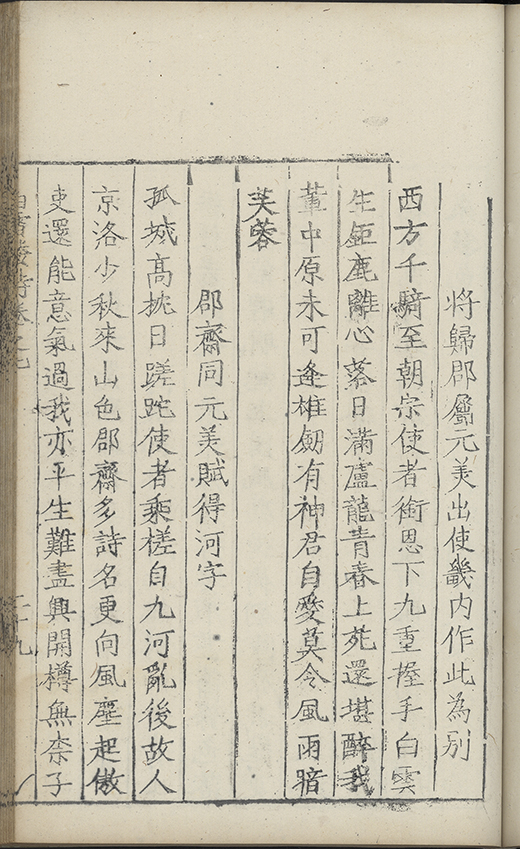 將歸郡屬元美出使畿内作此為別
西方千騎至朝宗使者銜恩下九重握手白雲
生鉅鹿離心落日滿盧龍青春上苑還堪醉我
軰中原未可逢雄劒有神君自愛莫令風雨暗
芙蓉
郡齋同元美賦得河字
孤城髙枕日蹉跎使者乘槎自九河亂後故人
京洛少秋來山色郡齋多詩名更向風塵起傲
吏還能意氣過我亦平生難盡興開樽無柰子
白雪樓詩卷之七
二十九